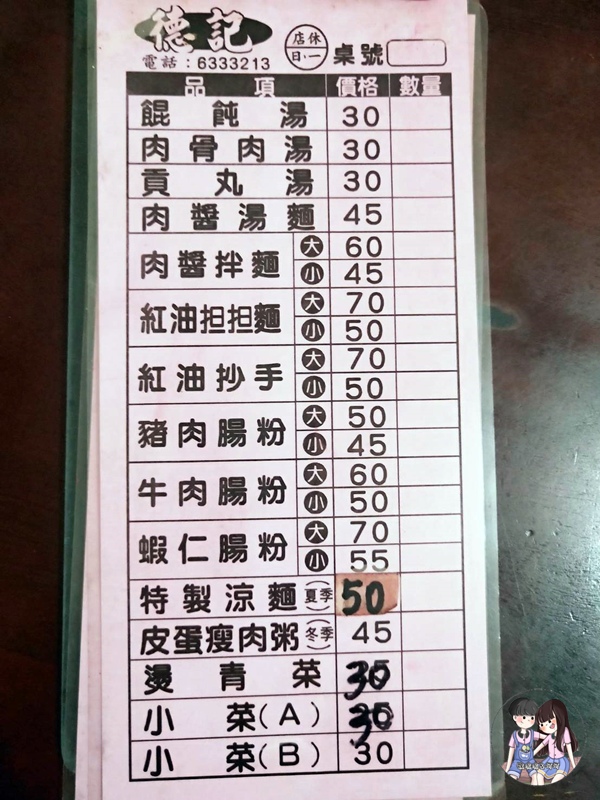 德記
店休
日一
桌號
電話：6333213
品項 價格 數量
餛飩湯 30
肉骨肉湯 30
貢丸湯 30
肉醬湯麵 45
肉醬拌麵 大 60
小 45
紅油担担麵 大 70
小 50
紅油抄手 大 70
小 50
豬肉腸粉 大 50
小 45
牛肉腸粉 大 60
小 50
蝦仁腸粉 大 70
小 55
特製涼麵(夏季) 50
皮蛋瘦肉粥(冬季) 45
燙青菜 30
小菜(A) 30
小菜(B) 30